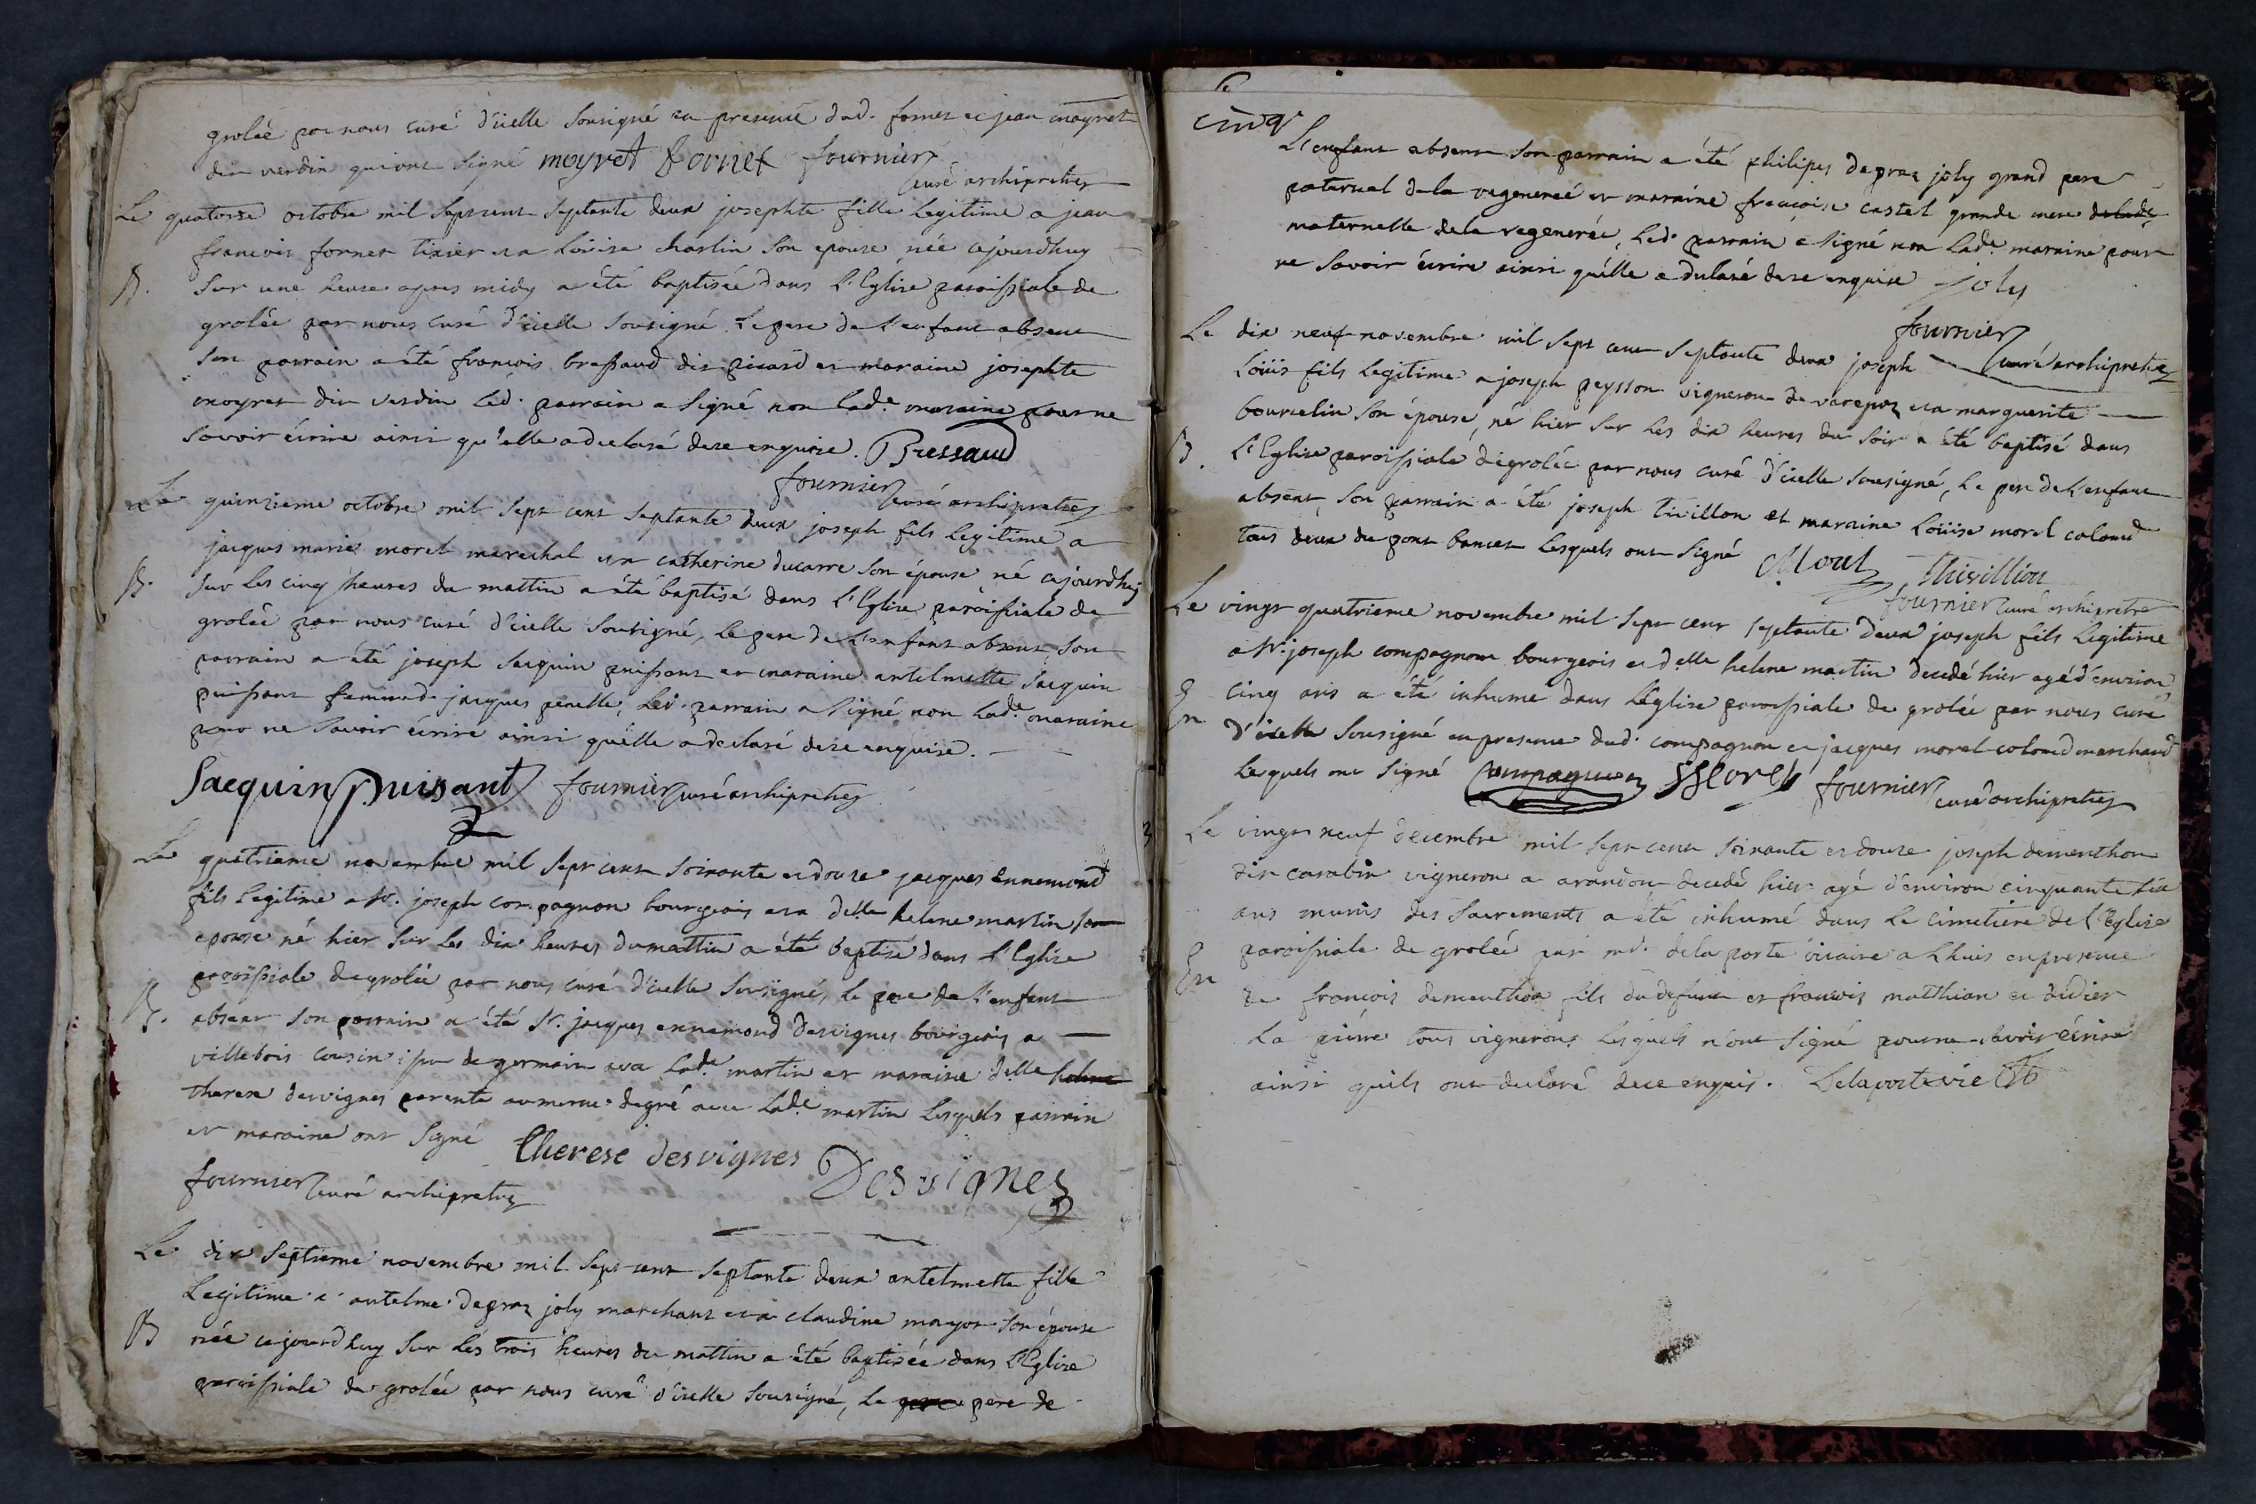 grolée par nous curé d'icelle sousigné en presence dud. fornet et jean moyret
dit verdin qui ont signé moyret fornet fournier
curé archipretre
Le quatorze octobre mil sept cent septante deux josephte fille legitime a jean
francois fornet tixier et a Loüise charlin son epouse née cejourdhuy
B. sur une heure apres midy a été baptisée dans l'Eglise paroissiale de
grolée par nous curé d'icelle sousigné le pere de l'enfant absent
son parrain a été francois bressaud dit picard et maraine josephte
moyret dit verdin led. parrain a signé non lad.e maraine pour ne
savoir écrire ainsi qu'elle a declaré de ce enquise. Bressaud
fournier curé archipretre
Le quinzieme octobre mil sept cent septante deux joseph fils legitime a
jacques marie morel marechal et a catherine ducarre son épouse né cejourdhuy
B. sur les cinq heures du mattin a été baptisé dans l'Eglise paroissiale de
grolée par nous curé d'icelle sousigné, le pere de l'enfant absent, son
parrain a été joseph sacquin puissant et maraine antelmette sacquin
puissant femme d. jacques penelle, led. parrain a signé non lad.e maraine
pour ne savoir écrire ainsi qu'elle a declaré de ce enquise.
Sacquin Puisant fournier curé archipretre
Le quatrieme novembre mil sept cent soixante et douze jacques Ennemond
fils legitime a Sr. joseph compagnon bourgeois et a delle helene martin son
epouse né hier sur les dix heures du mattin a été baptisé dans l'Eglise
paroissiale de grolée par nous curé d'icelle sousigné, le pere de l'enfant
B. absent son parrain a été Sr. jacques ennemond desvignes bourgeois a
villebois cousin issu de germain a lad.e martin et maraine delle helene
therese desvignes parente au meme degré avec lad.e martin lesquels parrain
et maraine ont signé therese desvignes Desvignes
fournier curé archipretre
Le dix septieme novembre mil sept cent septante deux antelmette fille
Legitime a antelme depraz joly marchant et a claudine mayor son épouse
B née cejourdhuy sur les trois heures du mattin a été baptisée dans l'Eglise
paroissiale de grolée par nous curé d'icelle sousigné, le pere pere de
cinq.
L'enfant absent son parrain a été philipes depraz joly grand pere
paternel de la regenereé et maraine francoise castel grande mere de lade
maternelle de la regenerée, led. parrain a signé non lad.e maraine pour
ne savoir écrire ainsi qu'elle a declaré de ce enquise joly
fournier curé archipretre
Le dix neuf novembre mil sept cent septante deux joseph
Loüis fils legitime a joseph peysson vigneron de varepoz et a marguerite
bourcelin son épouse, né hier sur les dix heures du soir a été baptisé dans
B. l'Eglise paroissiale de grolée par nous curé d'icelle sousigné, le pere de l'enfant
absent, son parrain a été joseph tivillon et maraine Loüise morel colomd
tous deux du pont bancet lesquels ont signé Morel Thivillion
fournier curé archipretre
Le vingt quatrieme novembre mil sept cent septante deux joseph fils legitime
a Sr. joseph compagnon bourgeois et delle helene martin decedé hier agé d'environ
En cinq ans a été inhumé dans l'Eglise paroissiale de grolée par nous curé
d'icelle sousigné en presence dud. compagnon et jacques morel colomd marchand
lesquels ont signé Compagnion JMorel fournier curé archipretre
Le vingt neuf decembre mil sept cent soixante et douze joseph dementhon
dit carabin vigneron a arandon decedé hier agé d'environ cinquante six
ans munis des sacrements a été inhumé dans le cimetiere de l'Eglise
En paroissiale de grolée par mr. de la porte vicaire a Lhuis en presence
de francois dementhon fils du defunt et francois matthian et didier
la pierre tous vignerons lesquels n'ont signé pour ne savoir écrire
ainsi quils ont declaré de ce enquis. Delaporte vic